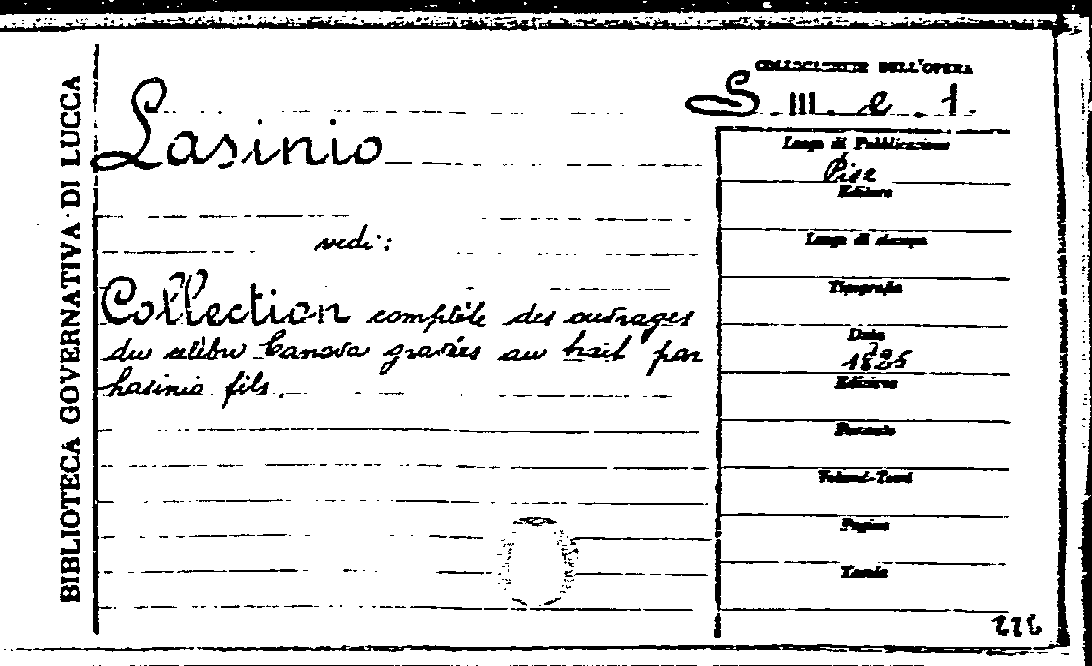 BIBLIOTECA GOVERNATIVA DI LUCCA
COLLOCAZIONE DELL'OPERA
S. III. e. 1.
Lasinio
vedi:
Collection complète des ouvrages
du célèbre Canova gravées au trait par
Lasinio fils.
Luogo di Pubblicazione
Pise
Editore
Luogo di stampa
Tipografia
Data
1825
Edizione
Formato
Volumi-Tomi
Pagine
Tavole